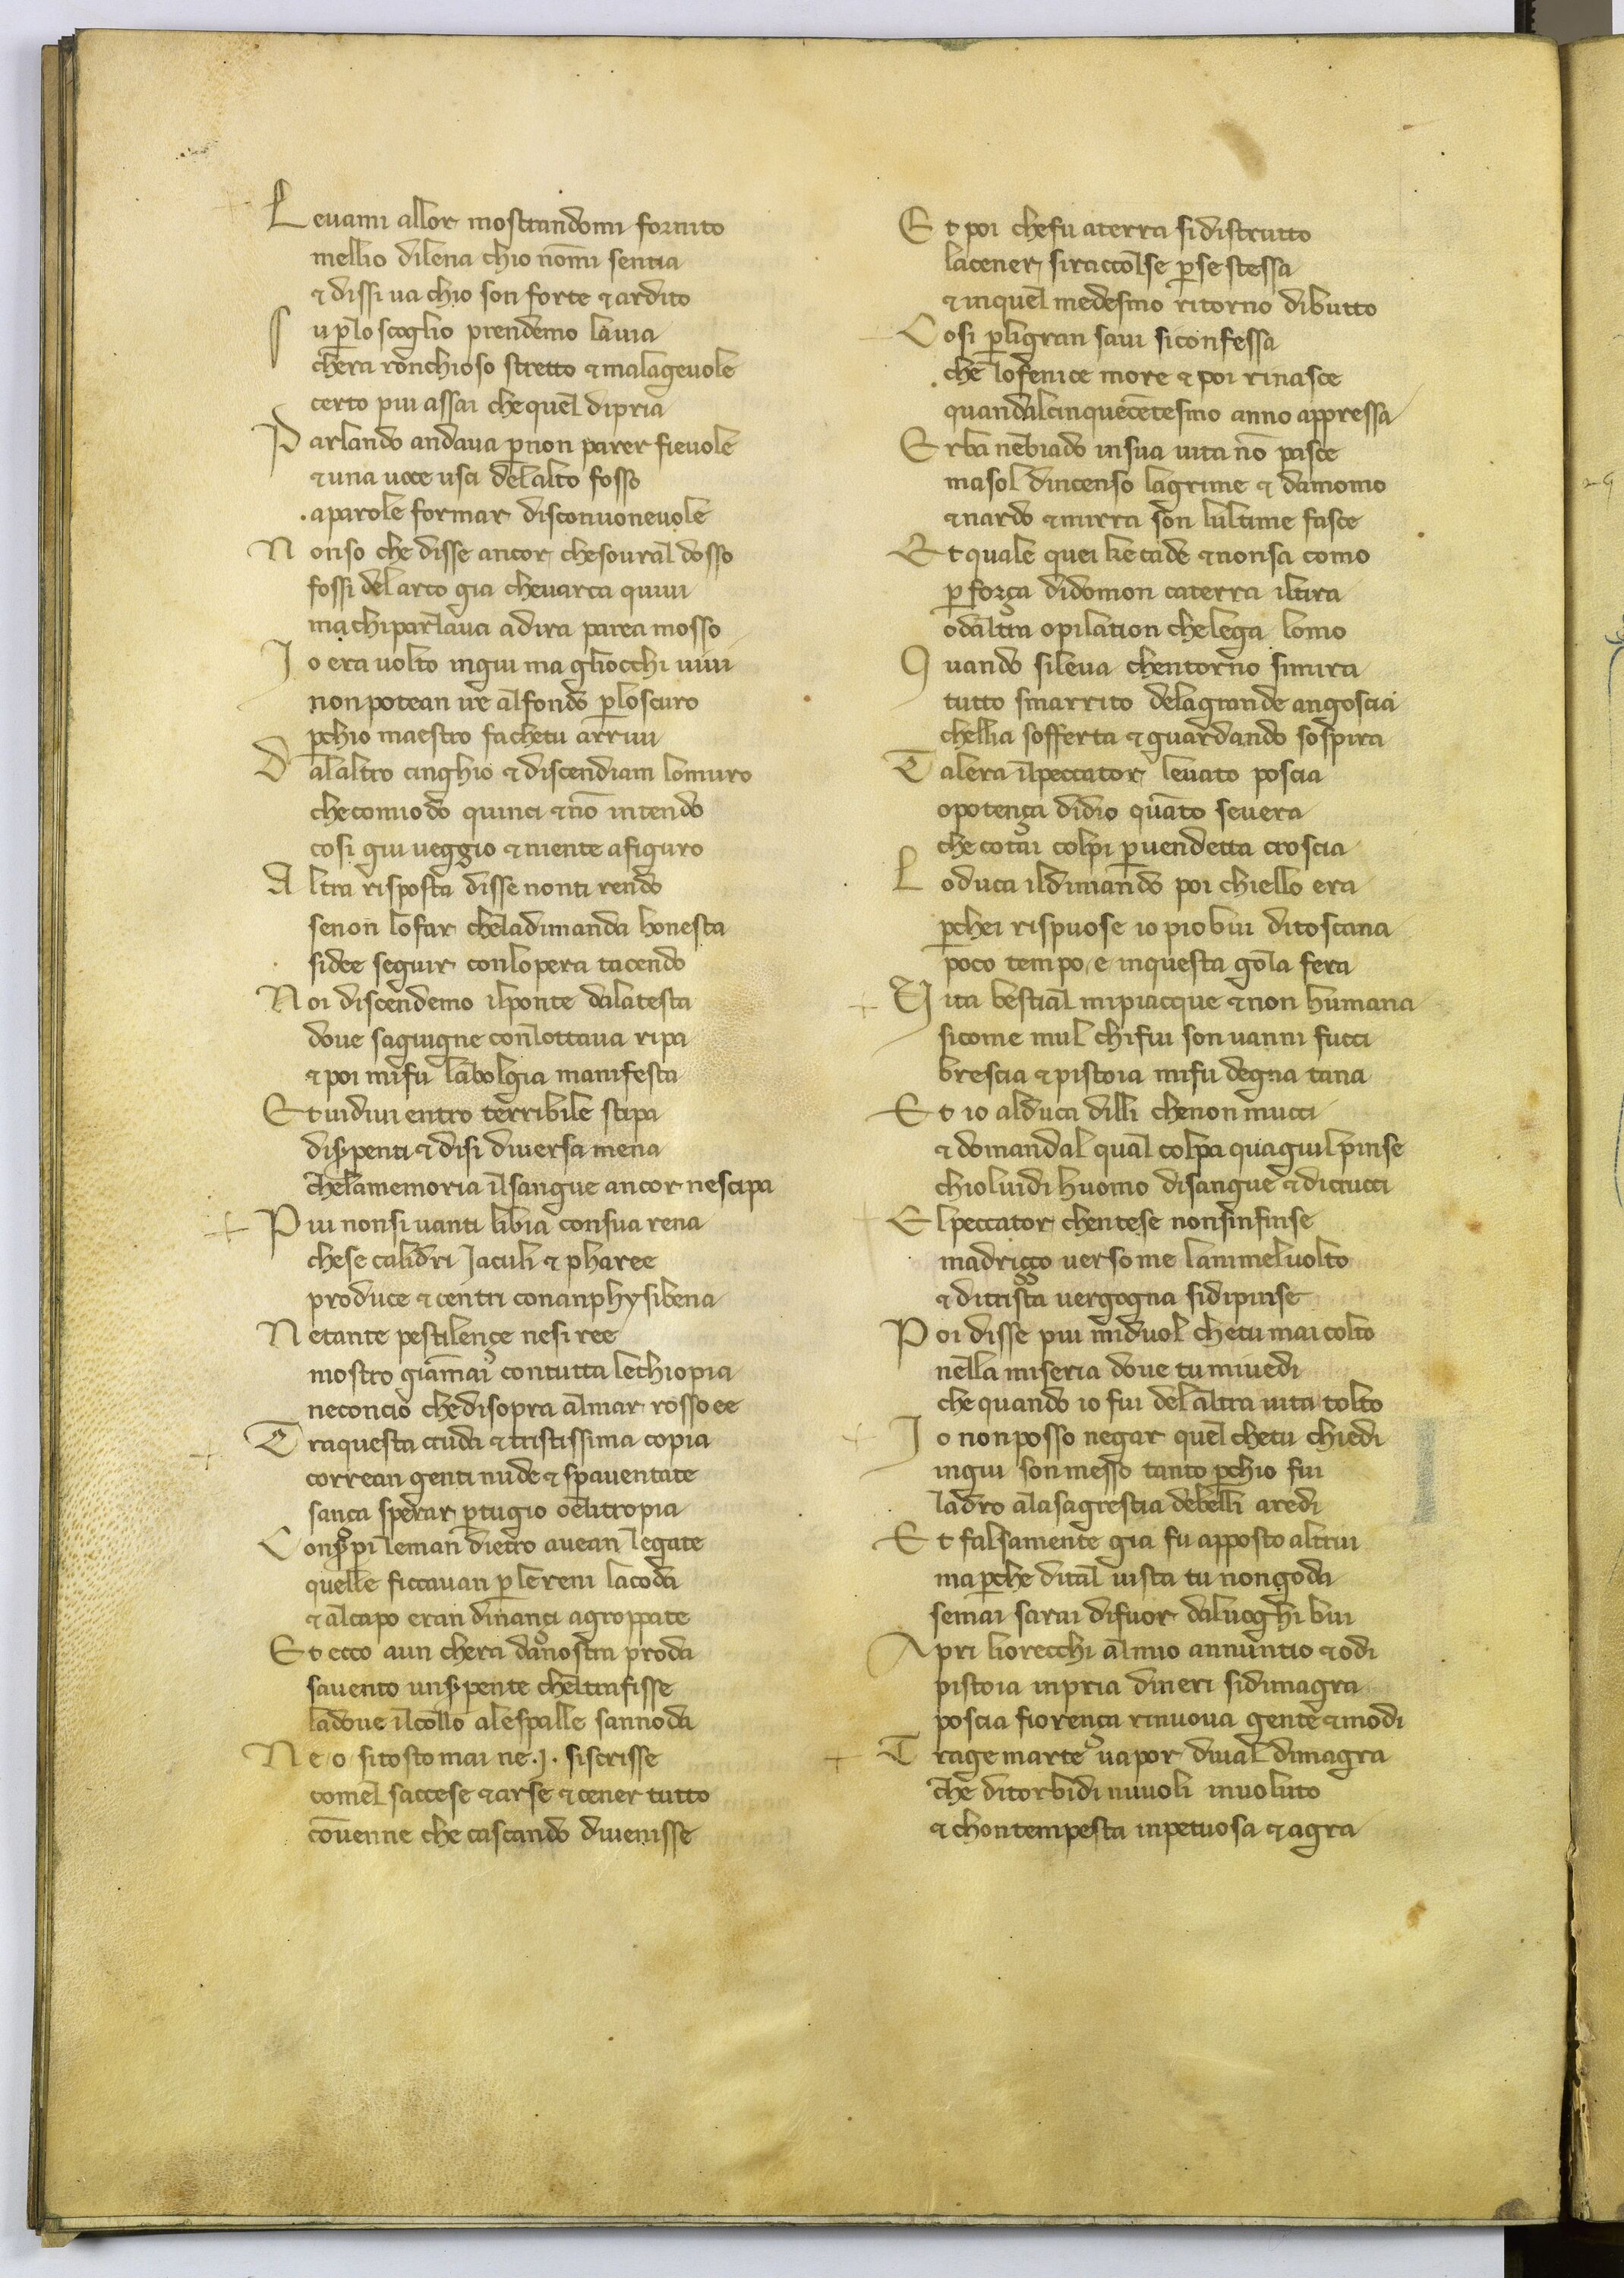 Leuami allor mostrandomi fornito
mellio dilena chio nōmi sentia
⁊ dissi ua chio son forte ⁊ ardito
Su ꝑlo scoglio prendemo lauia
chera ronchioso stretto ⁊ malageuole
certo piu assai che quel dipria
Parlando andaua ꝑ non parer fieuole
⁊ una uoce usci delalto fosso
aparole formar disconuoneuole
Nonso che disse ancor chesoural dosso
fossi del arco gia cheuarca quiui
ma chiparlaua adira parea mosso
Jo era uolto ingiu ma gliocchi uiui
non potean ire alfondo ꝑloscuro
ꝑchio maestro fachetu arriui
Dalaltro cinghio ⁊ discendiam lomuro
checomio do quinci ⁊ nō intendo
cosi giu ueggio ⁊ niente afiguro
Altra risposta disse nonti rendo
senon lofar chelladimanda honesta
sidee seguir conlopera tacendo
Noi discendemo ilponte dalatesta
doue sagiugne conlottaua ripa
⁊ poi mifu labolgia manifesta
Et uidiui entro terribile stipa
disꝑpenti ⁊ disi diuersa mena
chelamemoria ilsangue ancor nescipa
Piu nonsi uanti libia consua rena
chese calidri Jaculi ⁊ pharee
produce ⁊ centri conanphysibena
Netante pestilençe nesi ree
mostro giāmai contutta lethiopia
neconcio chedisopra almar rosso ee
Traquesta cruda ⁊ tristissima copia
correan genti nude ⁊ spauentate
sança sperar ꝑtugio oelitropia
Con sꝑpi leman dietro auean legate
quelle ficcauan ꝑ lereni lacoda
⁊ alcapo eran dinançi agroppate
Et ecco aun chera danostra proda
sauento unsꝑpente cheltrafisse
ladoue ilcollo alespalle sannoda
Ne o sitosto mai ne .J. siscrisse
comel saccese ⁊ arse ⁊ cener tutto
cōuenne che cascando diuenisse
Et poi chefu aterra sidistrutto
lacener siraccolse ꝑ se stessa
⁊ inquel medesmo ritorno dibutto
Cosi ꝑligran saui siconfessa
che lofenice more ⁊ poi rinasce
quandalcinquecētesmo anno appressa
Erba nēbiado insua uita nō pasce
masol dincenso lagrime ⁊ damomo
⁊ nardo ⁊ mirra son lultime fasce
Et quale quei ke cade ⁊ nonsa como
ꝑ força didomon caterra iltira
odaltra opilation chelega lomo
Quando sileua chentorno simira
tutto smarrito delagrande angoscia
chellia sofferta ⁊ guardando sospira
Talera ilpeccator leuato poscia
opotença didio quāto seuera
che cotai colpi ꝑuendetta croscia
Loduca ildimando poi chiello era
ꝑchei rispuose io piobui ditoscana
poco tempo e inquesta gola fera
Vita bestial mipiacque ⁊ non humana
sicome mul chifui son uanni fucci
brescia ⁊ pistoia mifu degna tana
Et io alduca dilli chenon mucci
⁊ domandal qual colpa quagiulpinse
chioluidi huomo disangue ⁊ dicrucci
Elpeccator chentese nonsinfinse
madriçço uerso me lanimeluolto
⁊ ditrista uergogna sidipinse
Poi disse piu miduol chetu mai colto
nella miseria doue tu miuedi
che quando io fui delaltra uita tolto
Jo nonposso negar quel chetu chiedi
ingiu sonmesso tanto ꝑchio fui
ladro alasagrestia debelli aredi
Et falsamente gia fu apposto altrui
maꝑche dital uista tu nongoda
semai sarai difuor daluoghi bui
Apri liorecchi almio annuntio ⁊ odi
pistoia inpria dineri sidimagra
poscia fiorença rinuoua gente ⁊ modi
Tragemarte uapor diual dimagra
che ditorbidi nuuoli inuoluto
⁊ chontempesta inpetuosa ⁊ agra